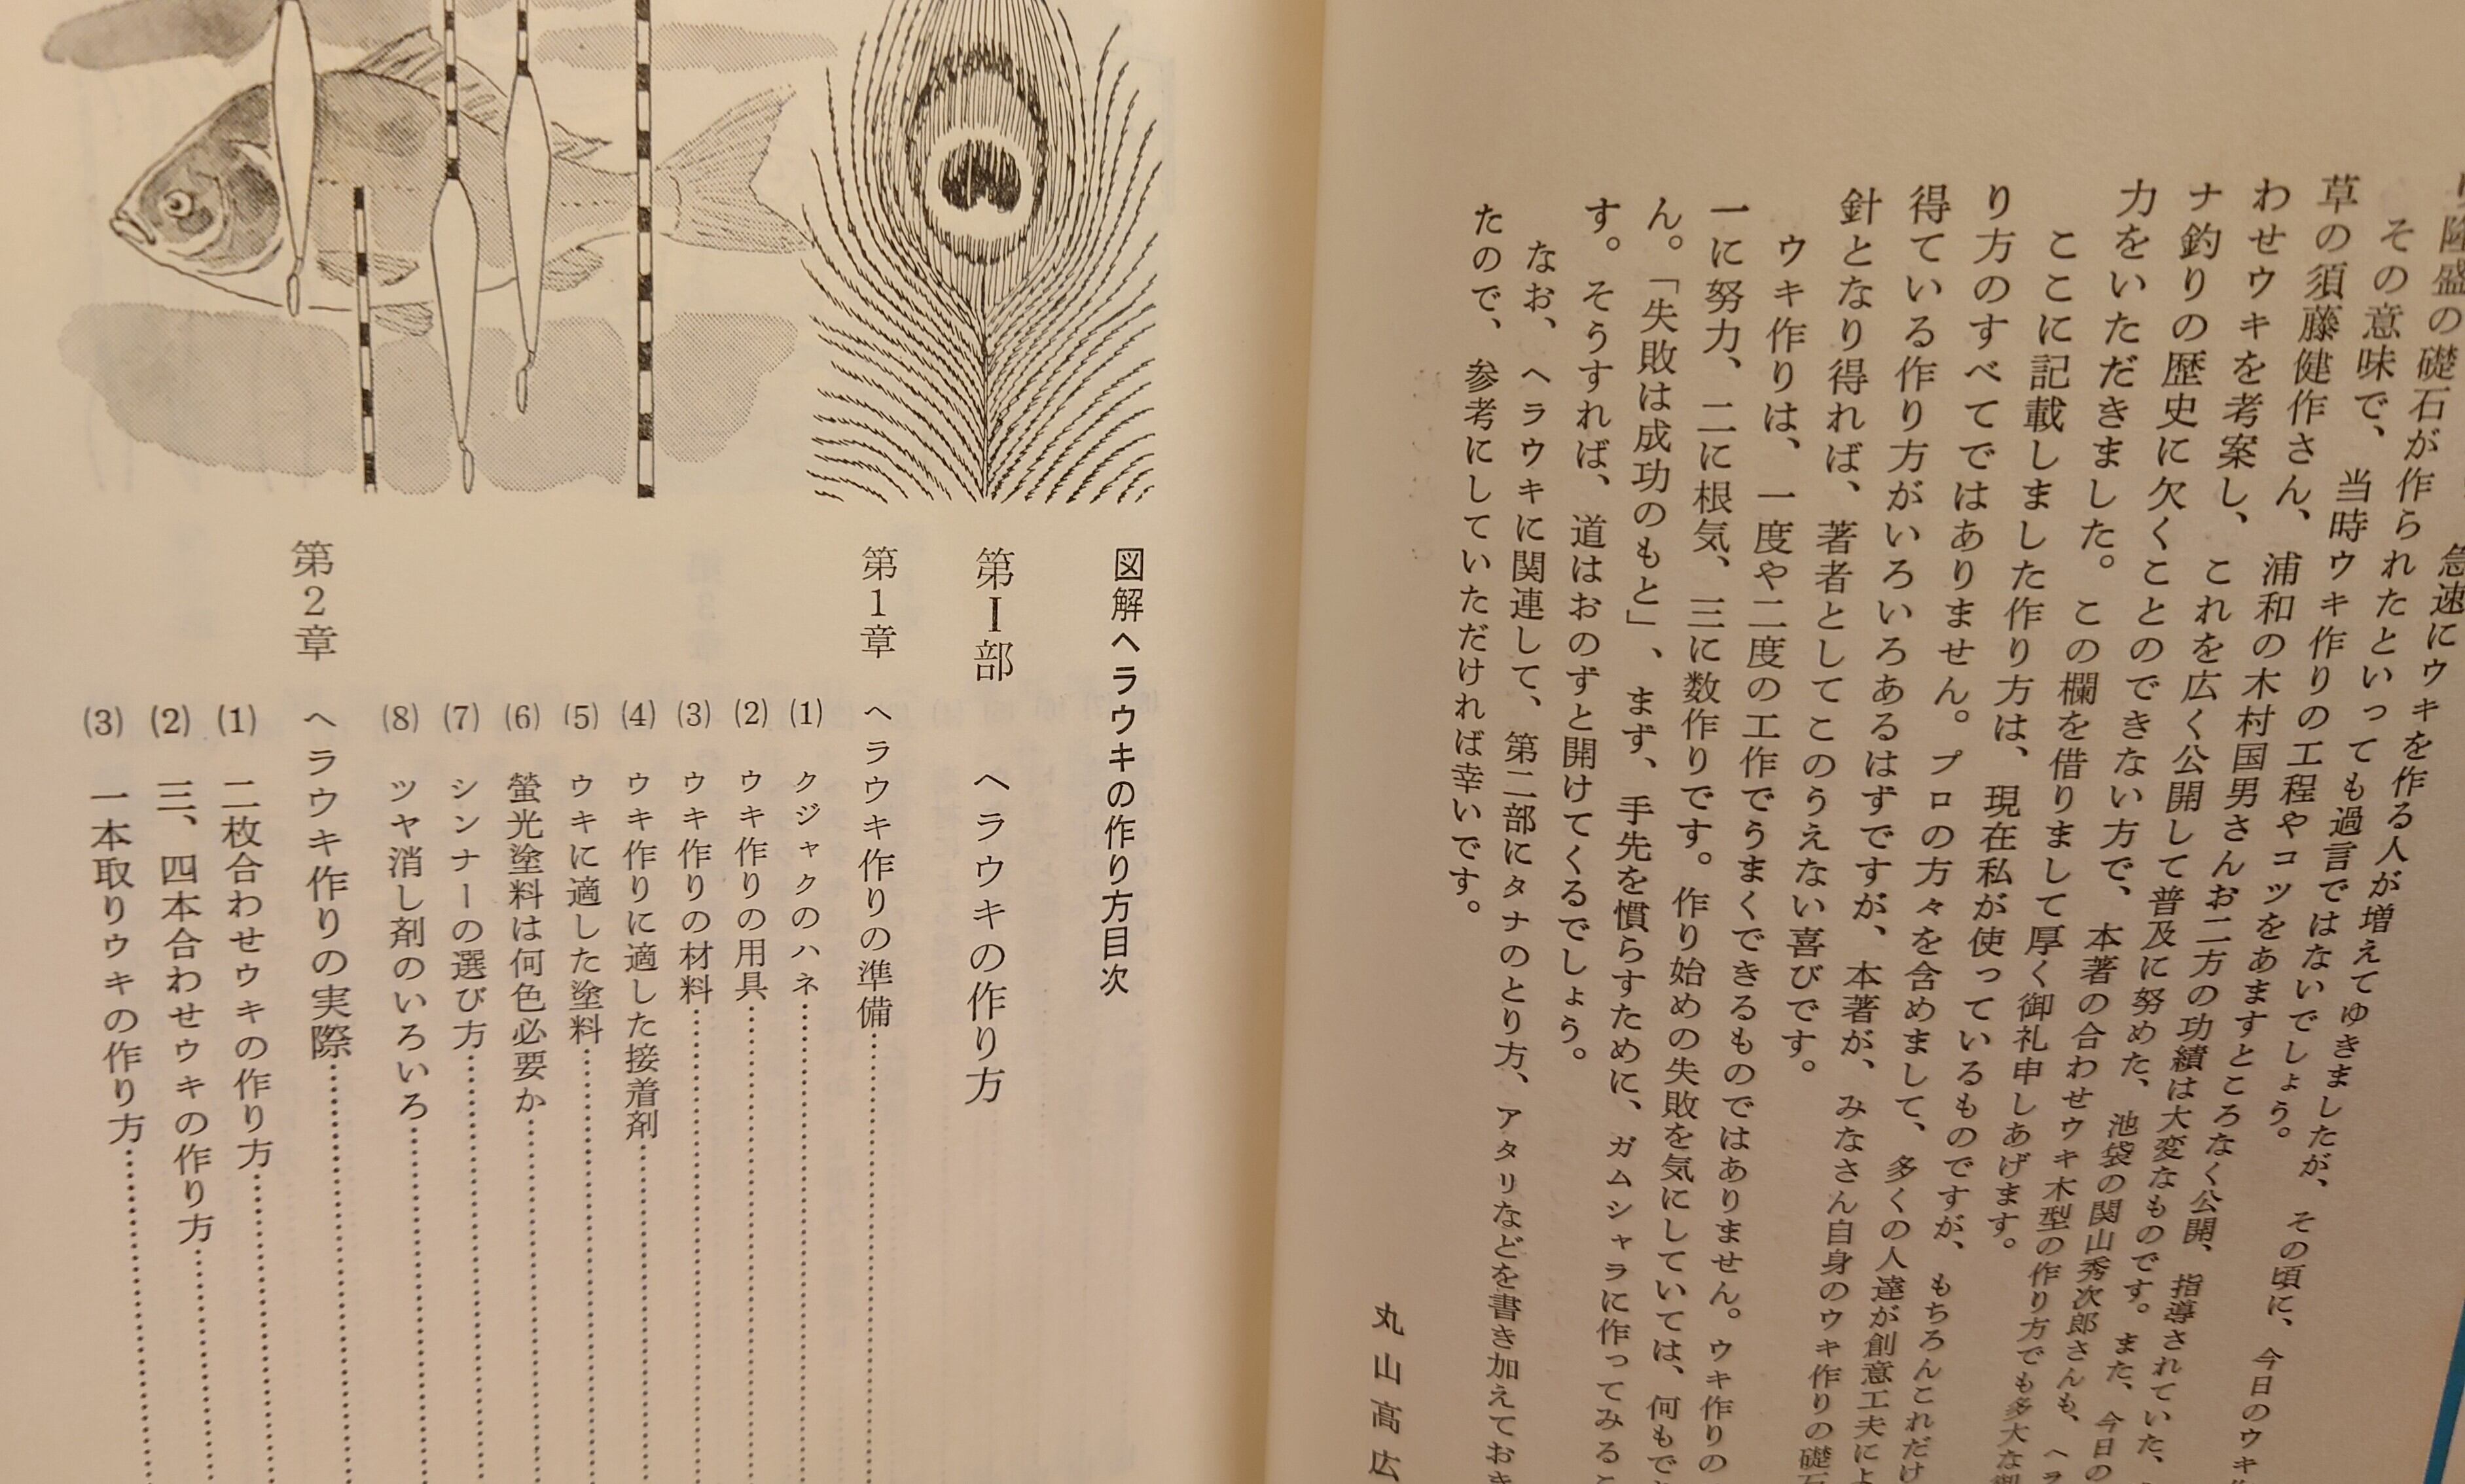 り隆盛の礎石が作られたといっても過言ではないでしょう。
急速にウキを作る人が増えてゆきましたが、その頃に、今日のウキ
その意味で、当時ウキ作りの工程やコツをあますところなく公開、指導されていた、
草の須藤健作さん、浦和の木村国男さんお二方の功績は大変なものです。また、今日の
わせウキを考案し、これを広く公開して普及に努めた、池袋の関山秀次郎さんも、ヘラ
ナ釣りの歴史に欠くことのできない方で、本著の合わせウキ木型の作り方でも多大な御
力をいただきました。この欄を借りまして厚く御礼申しあげます。
ここに記載しました作り方は、現在私が使っているものですが、もちろんこれだけ
り方のすべてではありません。プロの方々を含めまして、多くの人達が創意工夫によ
得ている作り方がいろいろあるはずですが、本著が、みなさん自身のウキ作りの礎石
針となり得れば、著者としてこのうえない喜びです。
ウキ作りは、一度や二度の工作でうまくできるものではありません。ウキ作りの
一に努力、二に根気、三に数作りです。作り始めの失敗を気にしていては、何もで
ん。「失敗は成功のもと」、まず、手先を慣らすために、ガムシャラに作ってみるこ
す。そうすれば、道はおのずと開けてくるでしょう。
なお、ヘラウキに関連して、第二部にタナのとり方、アタリなどを書き加えておき
たので、参考にしていただければ幸いです。
丸山高広
図解ヘラウキの作り方目次
第Ⅰ部 ヘラウキの作り方
第1章 ヘラウキ作りの準備
(1) クジャクのハネ
(2) ウキ作りの用具
(3) ウキ作りの材料
(4) ウキ作りに適した接着剤
(5) ウキに適した塗料
(6) 螢光塗料は何色必要か
(7) シンナーの選び方
(8) ツヤ消し剤のいろいろ
第2章 ヘラウキ作りの実際
(1) 二枚合わせウキの作り方
(2) 三、四本合わせウキの作り方
(3) 一本取りウキの作り方